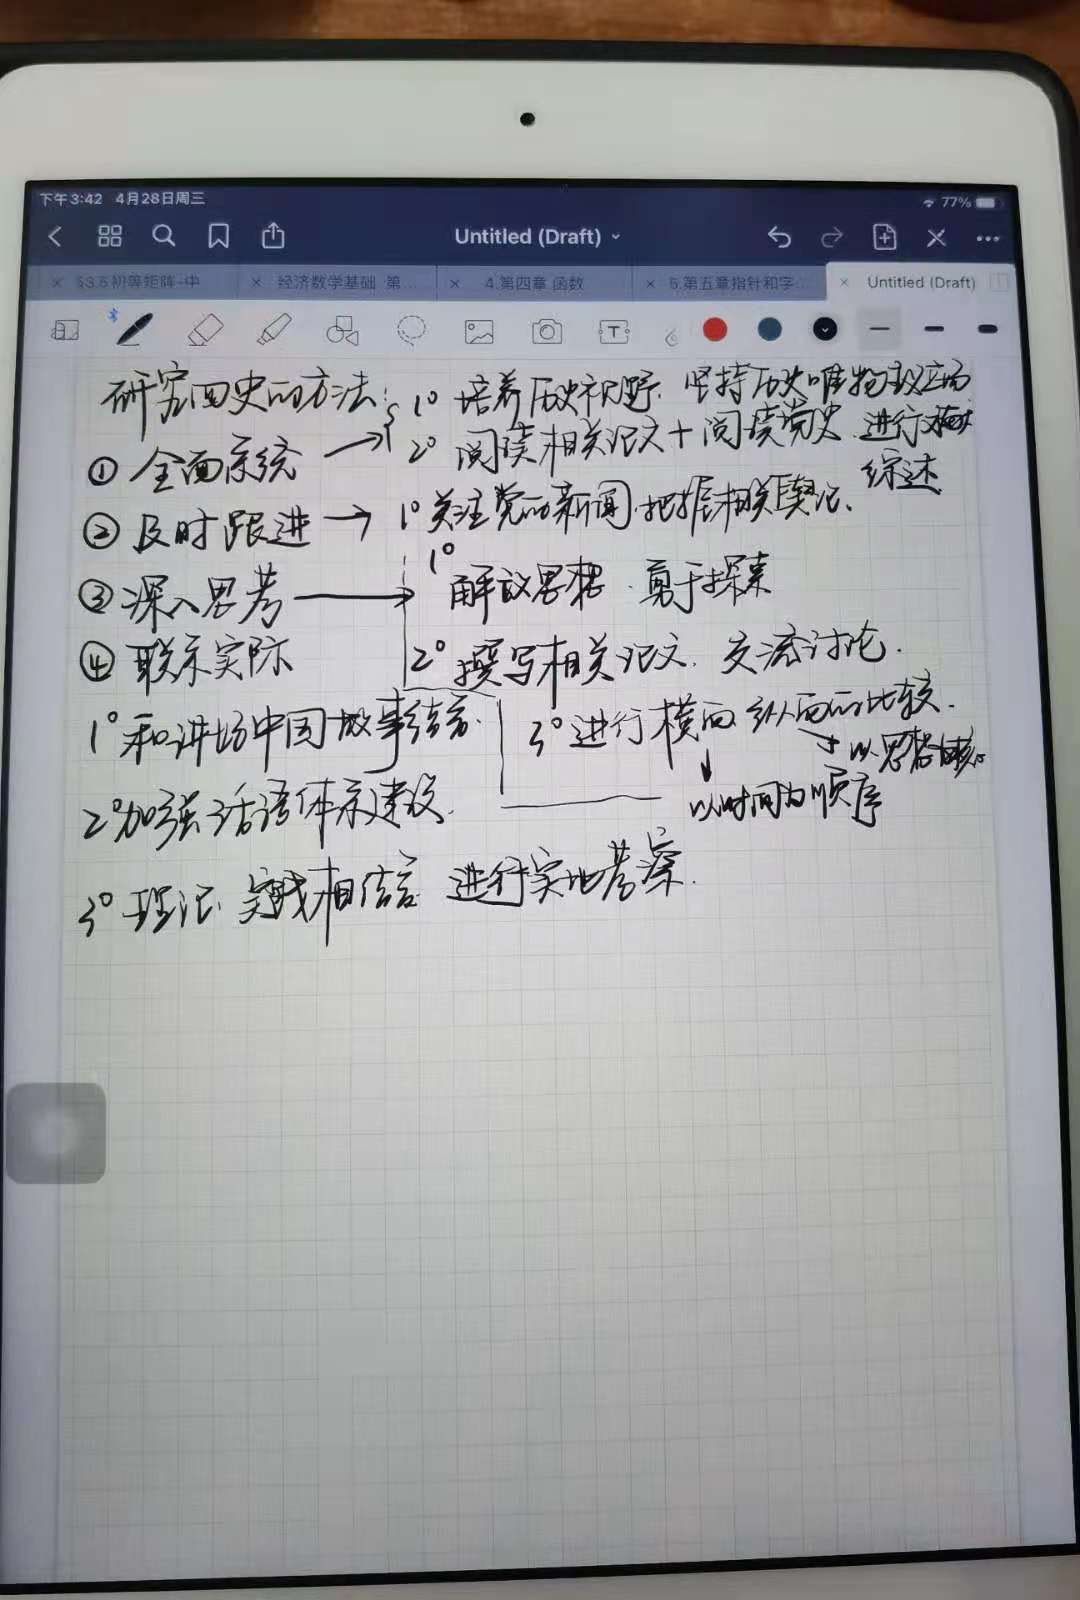 下午3:42 4月28日周三
77%
Untitled (Draft)
§3.5初等矩阵-中
经济数学基础 第...
4.第四章 函数
5.第五章指针和字...
Untitled (Draft)
研究四史的方法:
1° 培养历史视野. 坚持历史唯物主义立场
① 全面系统 → 2° 阅读相关论文+阅读党史 进行
综述
② 及时跟进 → 1° 关注党的新闻.把握相关舆论.
③ 深入思考 → 1° 解放思想.勇于探索
④ 联系实际
2° 撰写相关论文. 交流讨论.
3° 进行横向 纵向的比较.
→ 以思想
↓ 以时间为顺序
1° 和讲好中国故事结合.
2° 加强话语体系建设.
3° 理论. 实践相结合. 进行实地考察.